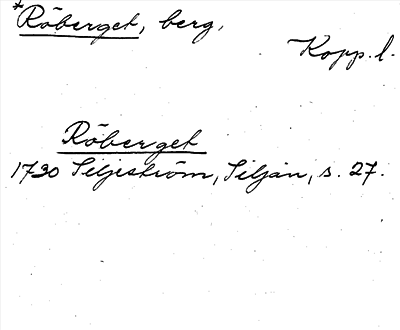 *Röberget, berg,
Kopp. l.
Röberget
1730 Siljeström, Siljan, s. 27.